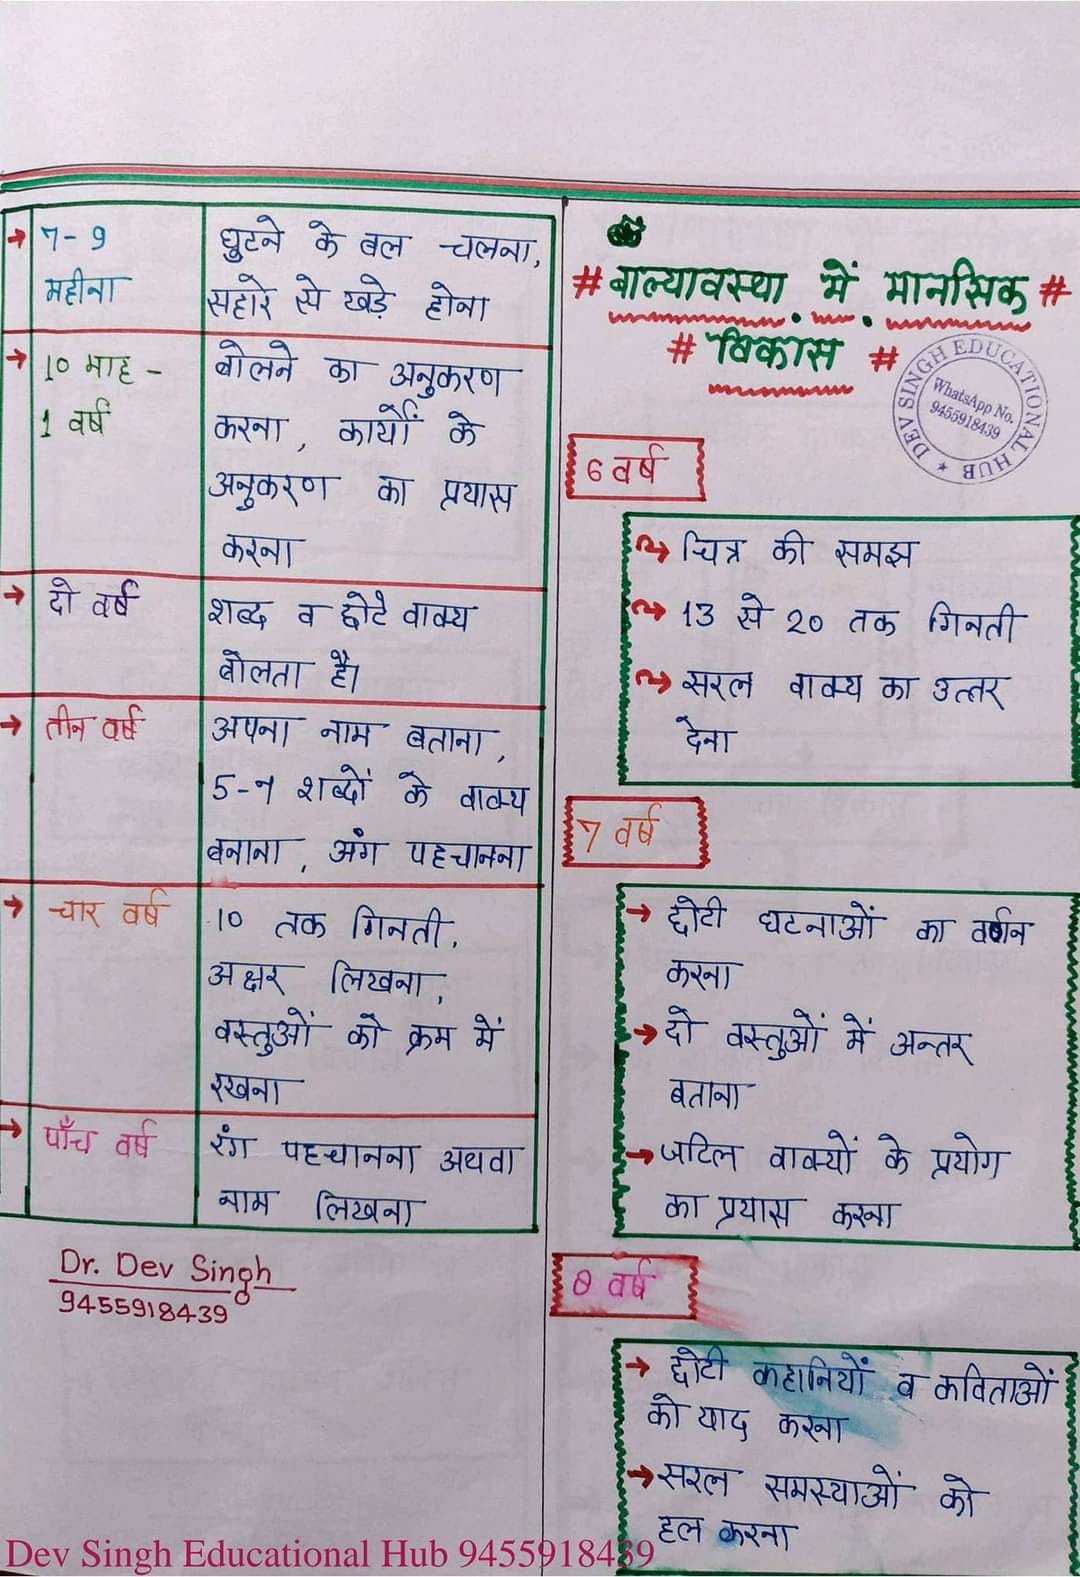 → 7-9 घुटने के बल चलना,
महीना सहारे से खड़े होना
→ 10 माह - बोलने का अनुकरण
1 वर्ष करना, कार्यों के
अनुकरण का प्रयास
करना
→ दो वर्ष शब्द व छोटे वाक्य
बोलता है।
→ तीन वर्ष अपना नाम बताना,
5-7 शब्दों के वाक्य
बनाना, अंग पहचानना
→ चार वर्ष 10 तक गिनती,
अक्षर लिखना,
वस्तुओं को क्रम में
रखना
→ पाँच वर्ष रंग पहचानना अथवा
नाम लिखना
Dr. Dev Singh
9455918439
# बाल्यावस्था में मानसिक #
# विकास #
DEV SINGH EDUCATIONAL HUB
WhatsApp No.
9455918439
6 वर्ष
→ चित्र की समझ
→ 13 से 20 तक गिनती
→ सरल वाक्य का उत्तर
देना
7 वर्ष
→ छोटी घटनाओं का वर्णन
करना
→ दो वस्तुओं में अन्तर
बताना
→ जटिल वाक्यों के प्रयोग
का प्रयास करना
8 वर्ष
→ छोटी कहानियों व कविताओं
को याद करना
→ सरल समस्याओं को
हल करना
Dev Singh Educational Hub 9455918439